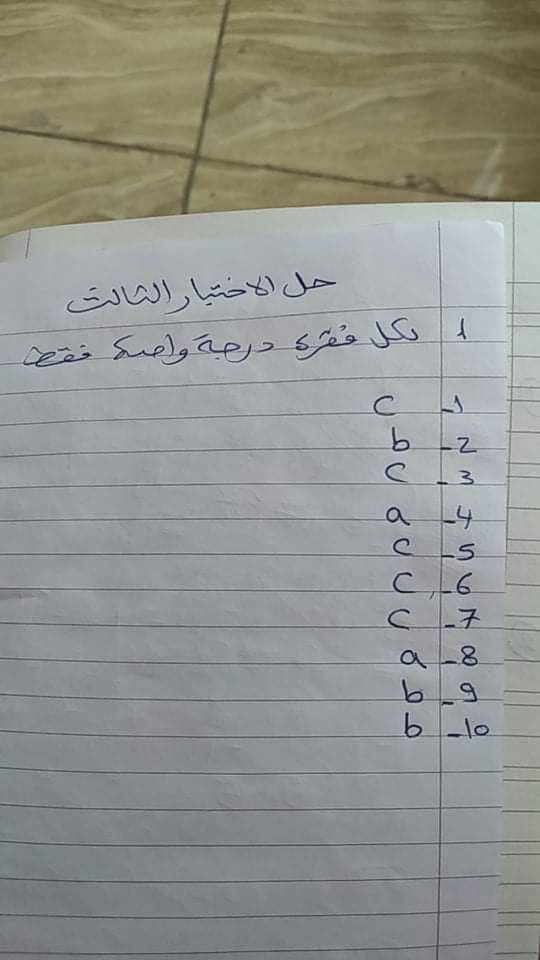 حل الاختبار الثالث
1 لكل فقرة درجة واحدة فقط
1- c
2- b
3- c
4- a
5- c
6- c
7- c
8- a
9- b
10- b